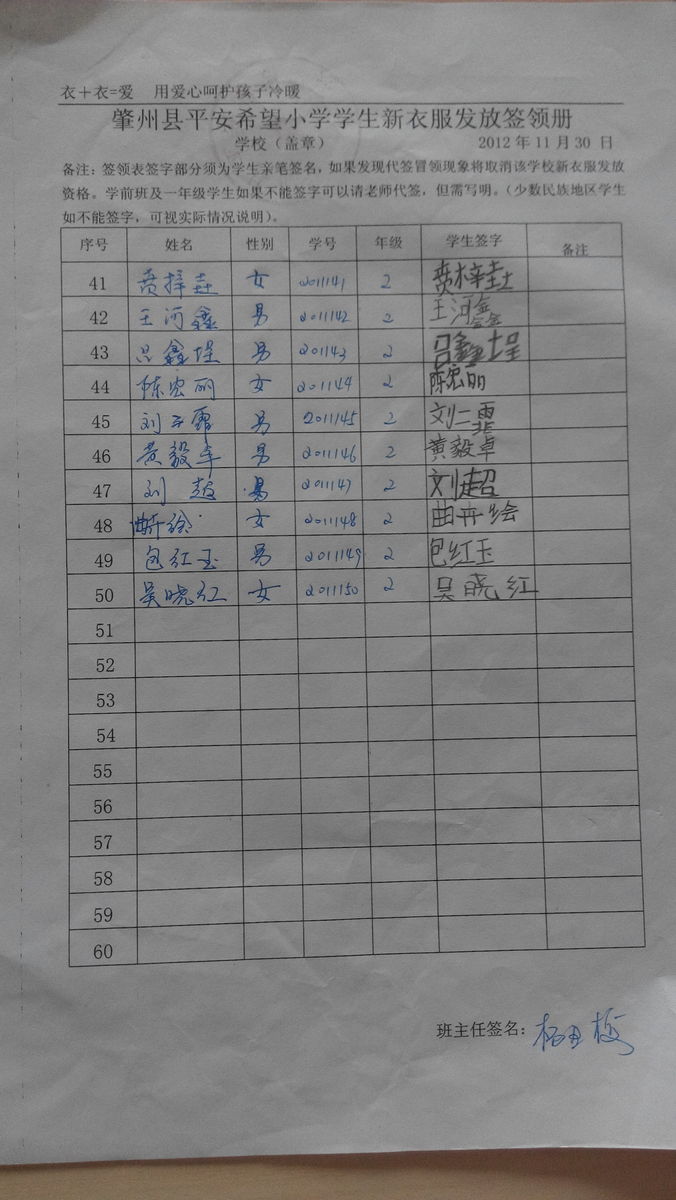 衣＋衣=爱 用爱心呵护孩子冷暖
肇州县平安希望小学学生新衣服发放签领册
学校（盖章） 2012 年 11 月 30 日
备注：签领表签字部分须为学生亲笔签名，如果发现代签冒领现象将取消该学校新衣服发放
资格。学前班及一年级学生如果不能签字可以请老师代签，但需写明。（少数民族地区学生
如不能签字，可视实际情况说明）。
序号 姓名 性别 学号 年级 学生签字 备注
41 女 2011141 2
42 王河鑫 男 2011142 2 王河鑫
43 吕鑫埕 男 201143 2 吕鑫埕
44 陈宏丽 女 2011144 2 陈宏丽
45 刘 男 2011145 2 刘
46 黄毅卓 男 2011146 2 黄毅卓
47 刘超 男 2011147 2 刘超
48 女 2011148 2 曲卉绘
49 包红玉 男 2011149 2 包红玉
50 吴晓红 女 2011150 2 吴晓红
51
52
53
54
55
56
57
58
59
60
班主任签名：